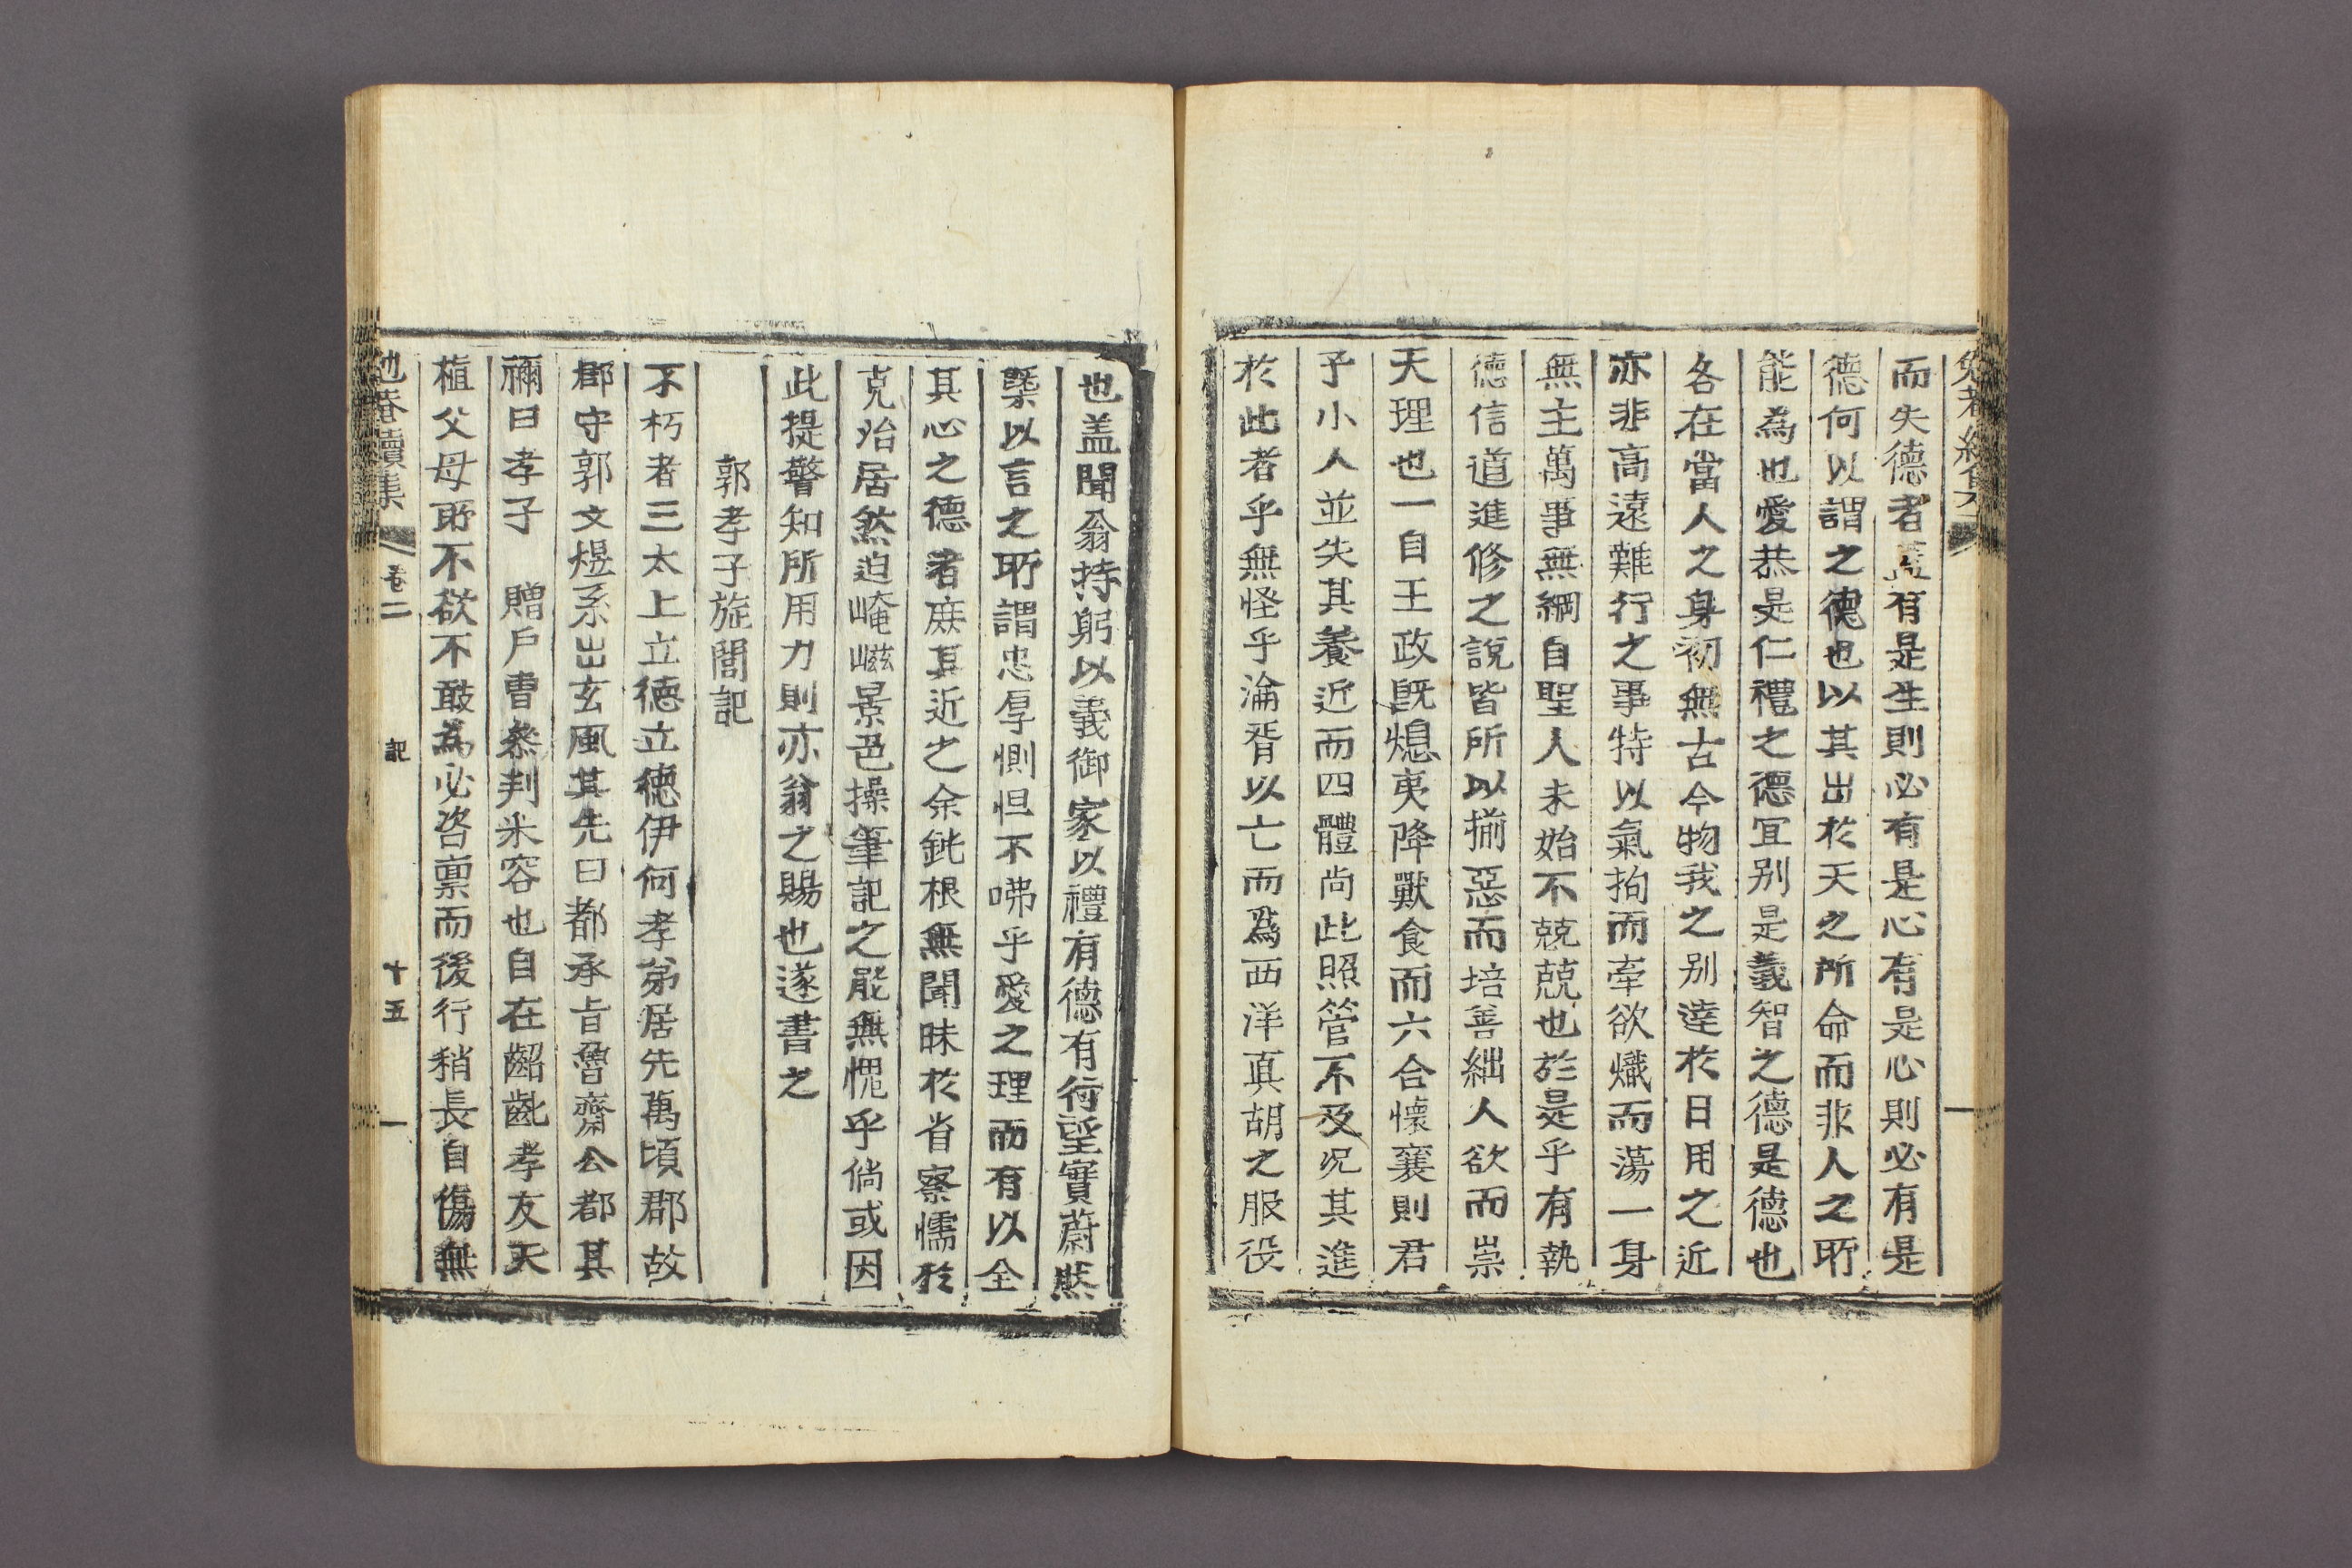 而失德者蓋有是生則必有是心有是心則必有是
德何以謂之德也以其出於天之所命而非人之所
能為也愛恭是仁禮之德冝别是義智之德是德也
各在當人之身初無古今物我之别達於日用之近
亦非高遠難行之事特以氣拘而牽欲熾而蕩一身
無主萬事無綱自聖人未始不兢兢也於是乎有執
德信道進修之說皆所以揃惡而培善絀人欲而崇
天理也一自王政旣熄夷降獸食而六合懷襄則君
予小人並失其養近而四體尚此照管不及况其進
於此者乎無怪乎淪胥以亡而爲西洋真胡之服役
也盖聞翁持躬以義御家以禮有德有行望實蔚然
槩以言之所謂忠厚惻怛不咈乎愛之理而有以全
其心之德者庶其近之余鈍根無聞昧於省察懦於
克治居然迫崦嵫景色操筆記之能無愧乎倘或因
此提警知所用力則亦翁之賜也遂書之
郭孝子旋閭記
不朽者三太上立德立德伊何孝弟居先萬頃郡故
郡守郭文煜系出玄風其先曰都承旨魯齋公都其
禰曰孝子 贈戶曹叅判米容也自在齠齔孝友天
植父母所不欲不敢為必咨禀而後行稍長自傷無
卷二
記
十五